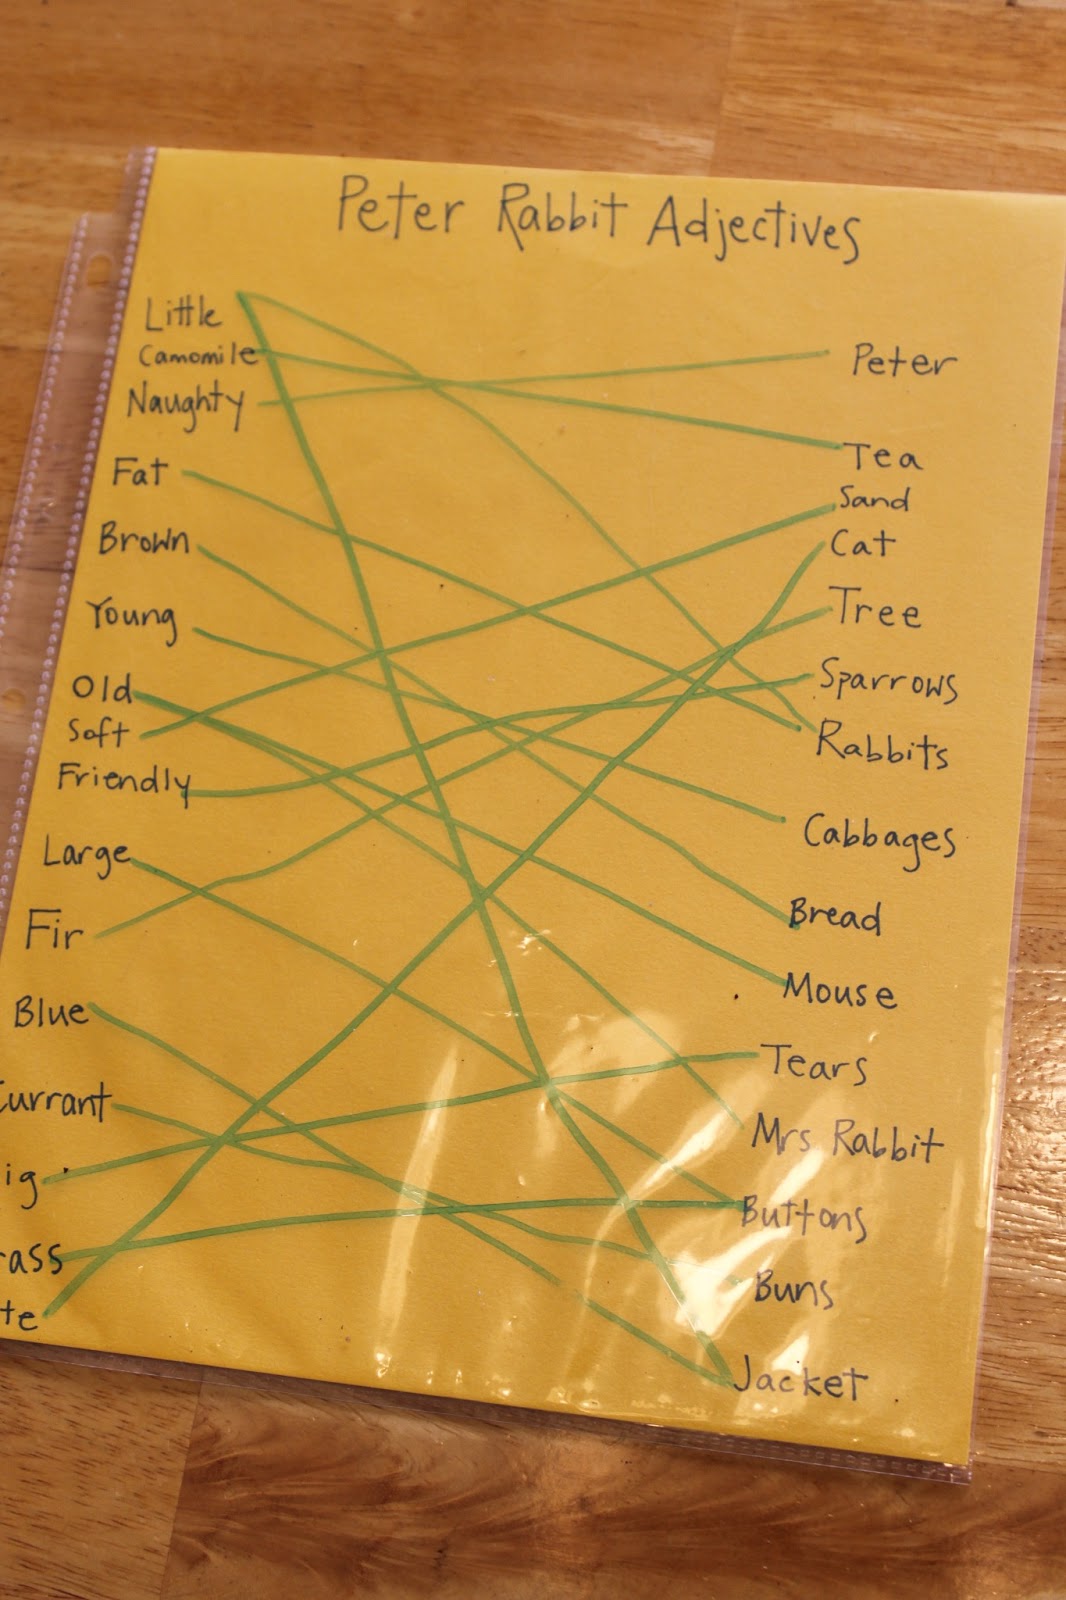 Peter Rabbit Adjectives
Little
Camomile
Naughty
Fat
Brown
Young
Old
Soft
Friendly
Large
Fir
Blue
Currant
ig
rass
te
Peter
Tea
Sand
Cat
Tree
Sparrows
Rabbits
Cabbages
Bread
Mouse
Tears
Mrs Rabbit
Buttons
Buns
Jacket